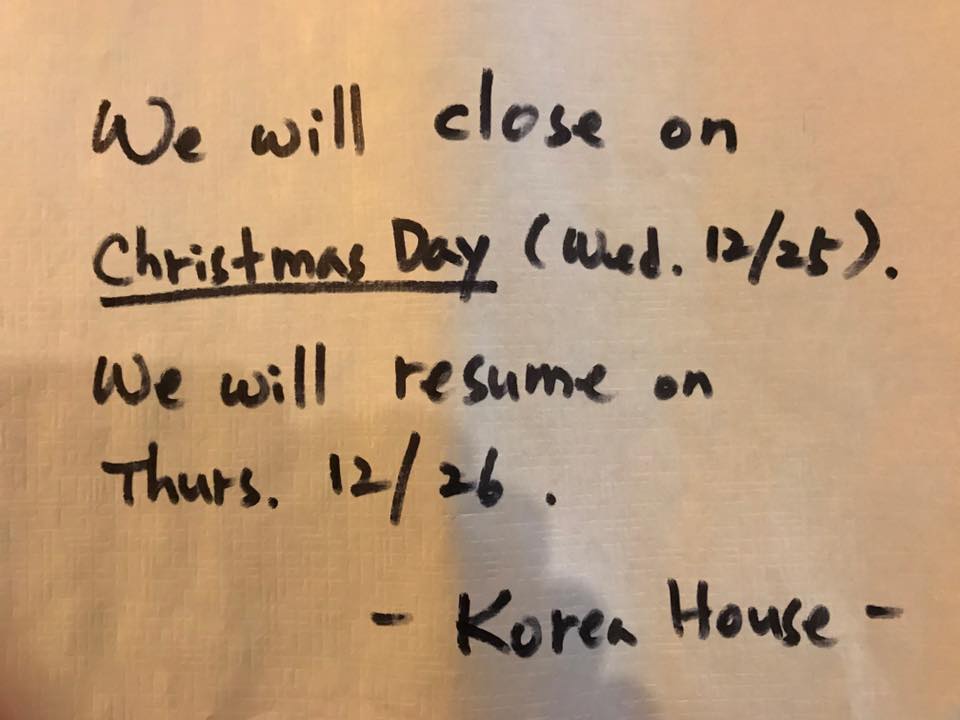 We will close on
Christmas Day (Wed. 12/25).
We will resume on
Thurs. 12/26.
- Korea House -